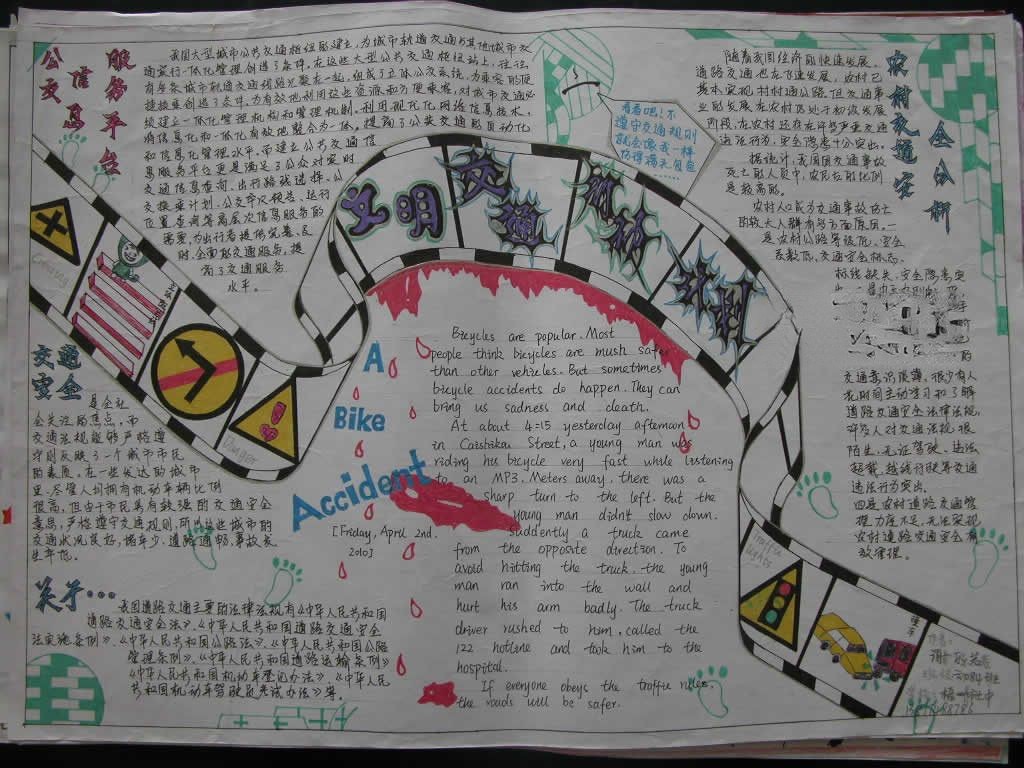 公交
信息
服务平台
我国大型城市公共交通枢纽的建立,为城市轨道交通与其他城市交
通实行一体化管理创造了条件,在这些大型公共交通枢纽站上,往往
有多条城市轨道交通线路汇聚在一起,组成了立体公交系统,为乘客的便
捷换乘创造了条件,为有效地利用这些资源和方便乘客,对城市交通必
须建立一体化管理机构和管理机制,利用现代化网络信息技术,
将信息化和一体化有效地整合为一体,提高了公共交通的自动化
和信息化管理水平,而建立公共交通信
息服务平台更是满足了公众对实时
交通信息查询、出行路线选择、公
交换乘计划、公交车次报告、运行
位置查询等高层次信息服务的
需要,为出行者提供完善、及
时、全面的交通服务,提
高了交通服务
水平。
看看吧!不
遵守交通规则
就会像我一样
伤得满天包包
......
农村交通安
全分析
随着我国经济的快速发展,
道路交通也在飞速发展,农村已
基本实现村村通公路,但交通事
业的发展,在农村仍处于初级发展
阶段,在农村还存在许多严重交通
违法行为,安全隐患十分突出。
据统计,我国因交通事故
死亡的人员中,农民占的比例
是较高的。
农村人口成为交通事故伤亡
的较大人群有多方面原因,一
是农村公路等级低,安全
系数低,交通安全标志、
标线缺失,安全隐患突
交通意识浅薄,很少有人
花时间主动学习和了解
道路交通安全法律法规,
许多人对交通法规很
陌生,无证驾驶、违法
超载、越线行驶等交通
违法行为突出。
四是农村道路交通管
理力度不足,无法实现
农村道路交通安全有
效管理。
文明交通 携砖并创
Danger
交通
安全
是全社
会关注的焦点,而
交通法规能够严格遵
守则反映了一个城市市民
的素质,在一些发达的城市
里,尽管人均拥有机动车辆比例
很高,但由于市民具有较强的交通安全
意识,严格遵守交通规则,所以这些城市的
交通状况良好,堵车少,道路通畅,事故发
生率低。
关于...
我国道路交通主要的法律法规有《中华人民共和国
道路交通安全法》、《中华人民共和国道路交通安全
法实施条例》、《中华人民共和国公路法》、《中华人民共和国公路
管理条例》、《中华人民共和国道路运输条例》
《中华人民共和国机动车登记办法》、《中华人民
共和国机动车驾驶员考试办法》等。
A
Bike
Accident
[Friday, April 2nd.
2010]
Bicycles are popular. Most
people think bicycles are mush safer
than other vehicles. But sometimes
bicycle accidents do happen. They can
bring us sadness and death.
At about 4:15 yesterday afternoon
in Caishikou Street, a young man was
riding his bicycle very fast while listening
to an MP3. Meters away, there was a
sharp turn to the left. But the
young man didn't slow down.
Suddently a truck came
from the opposite direction. To
avoid hitting the truck, the young
man ran into the wall and
hurt his arm badly. The truck
driver rushed to him, called the
122 hotline and took him to the
hospital.
If everyone obeys the traffic rules,
the roads will be safer.
Traffic
lights